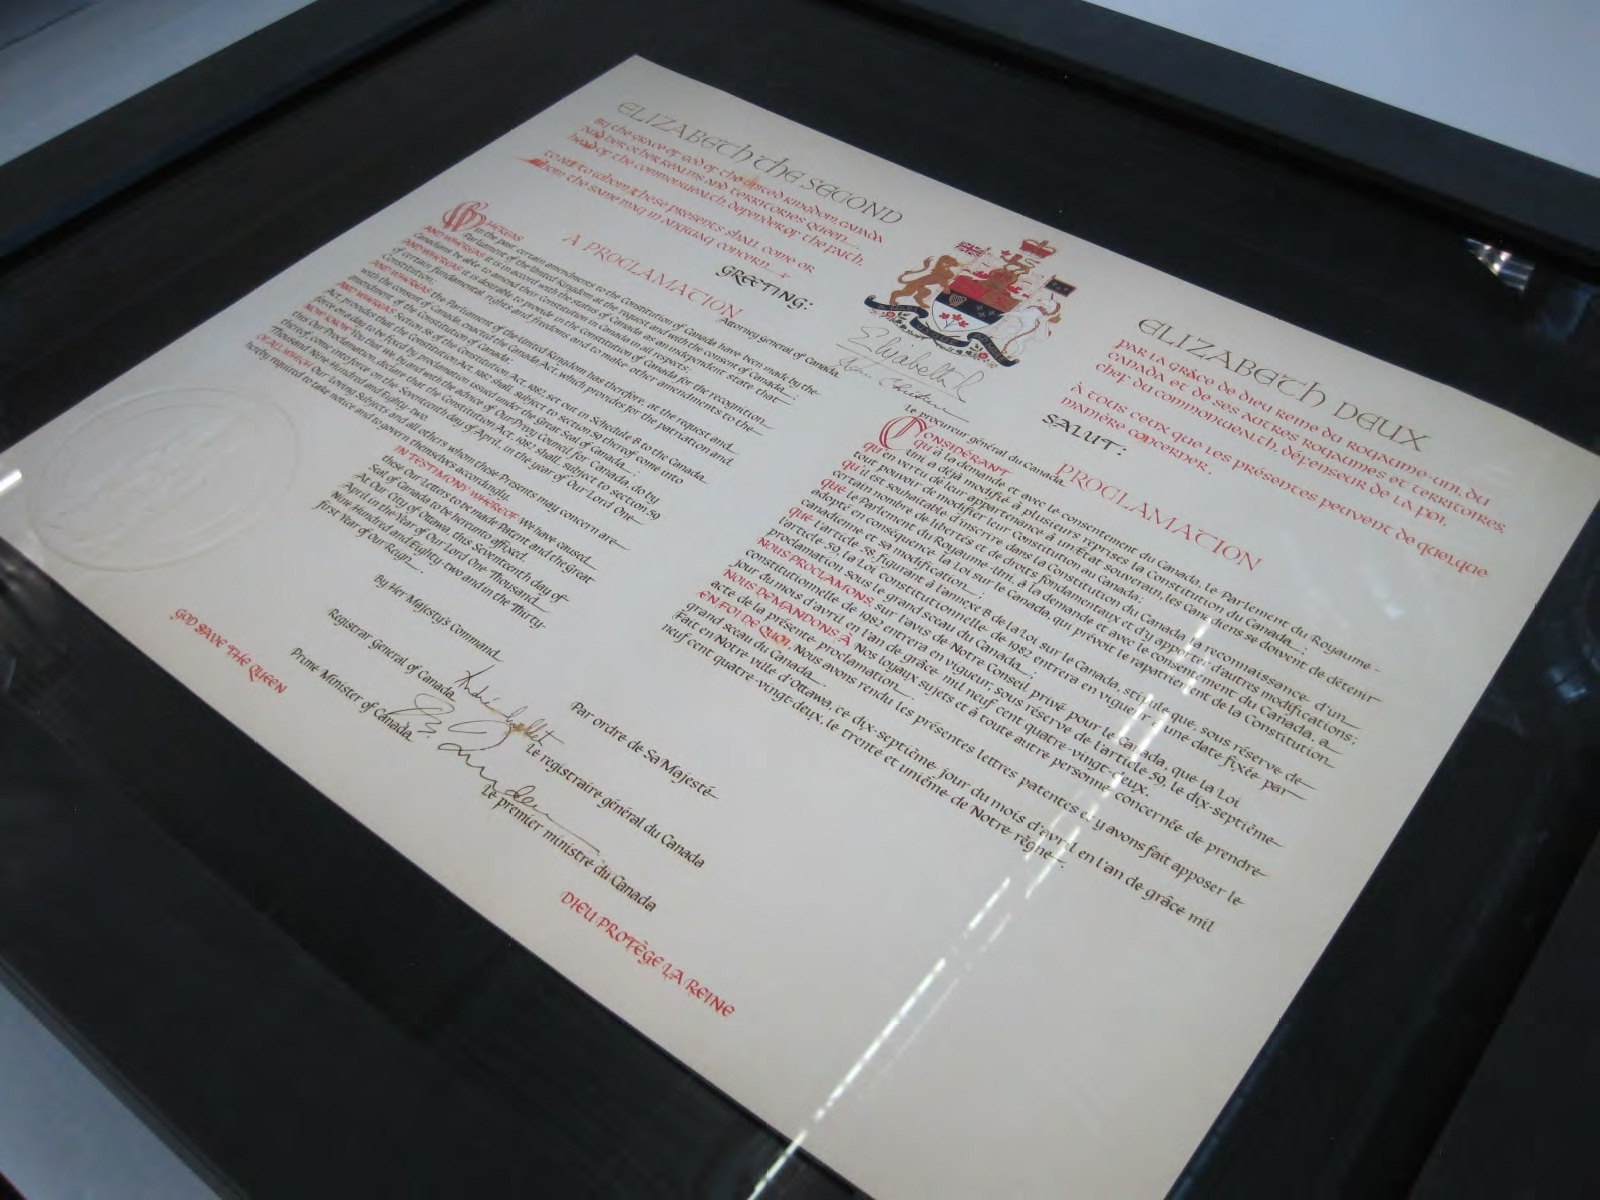 ELIZABETH THE SECOND
BY THE GRACE OF GOD OF THE UNITED KINGDOM, CANADA
AND HER OTHER REALMS AND TERRITORIES QUEEN,
HEAD OF THE COMMONWEALTH, DEFENDER OF THE FAITH.
TO ALL TO WHOM THESE PRESENTS SHALL COME OR
WHOM THE SAME MAY IN ANYWAY CONCERN,
GREETING:
A PROCLAMATION
Attorney General of Canada
WHEREAS
in the past certain amendments to the Constitution of Canada have been made by the
Parliament of the United Kingdom at the request and with the consent of Canada;
AND WHEREAS it is in accord with the status of Canada as an independent state that
Canadians be able to amend their Constitution in Canada in all respects;
AND WHEREAS it is desirable to provide in the Constitution of Canada for the recognition
of certain fundamental rights and freedoms and to make other amendments to the
Constitution;
AND WHEREAS the Parliament of the United Kingdom has therefore, at the request and
with the consent of Canada, enacted the Canada Act, which provides for the patriation and
amendment of the Constitution of Canada;
AND WHEREAS section 58 of the Constitution Act, 1982, set out in Schedule B to the Canada
Act, provides that the Constitution Act, 1982 shall, subject to section 59 thereof, come into
force on a day to be fixed by proclamation issued under the Great Seal of Canada.
NOW KNOW You that We, by and with the advice of Our Privy Council for Canada, do by
this Our Proclamation, declare that the Constitution Act, 1982 shall, subject to section 59
thereof, come into force on the Seventeenth day of April, in the year of Our Lord One
Thousand Nine Hundred and Eighty-two.
OF ALL WHICH Our Loving Subjects and all others whom these Presents may concern are
hereby required to take notice and to govern themselves accordingly.
IN TESTIMONY WHEREOF We have caused
these Our Letters to be made Patent and the Great
Seal of Canada to be hereunto affixed.
At Our City of Ottawa, this Seventeenth day of
April in the Year of Our Lord One Thousand
Nine Hundred and Eighty-two and in the Thirty-
first Year of Our Reign.
By Her Majesty's Command
Registrar General of Canada
Prime Minister of Canada
GOD SAVE THE QUEEN
Elizabeth R
Le procureur général du Canada
ELIZABETH DEUX
PAR LA GRÂCE DE DIEU REINE DU ROYAUME-UNI, DU
CANADA ET DE SES AUTRES ROYAUMES ET TERRITOIRES,
CHEF DU COMMONWEALTH, DÉFENSEUR DE LA FOI.
À TOUS CEUX QUE LES PRÉSENTES PEUVENT DE QUELQUE
MANIÈRE CONCERNER,
SALUT:
PROCLAMATION
CONSIDÉRANT
qu'à la demande et avec le consentement du Canada, le Parlement du Royaume-
Uni a déjà modifié à plusieurs reprises la Constitution du Canada;
qu'en vertu de leur appartenance à un État souverain, les Canadiens se doivent de détenir
tout pouvoir de modifier leur Constitution au Canada;
qu'il est souhaitable d'inscrire dans la Constitution du Canada la reconnaissance d'un
certain nombre de libertés et de droits fondamentaux et d'y apporter d'autres modifications;
que le Parlement du Royaume-Uni, à la demande et avec le consentement du Canada, a
adopté en conséquence la Loi sur le Canada, qui prévoit le rapatriement de la Constitution
canadienne et sa modification;
que l'article 58, figurant à l'annexe B de la Loi sur le Canada, stipule que, sous réserve de
l'article 59, la Loi constitutionnelle de 1982 entrera en vigueur à une date fixée par
proclamation sous le grand sceau du Canada.
NOUS PROCLAMONS, sur l'avis de Notre Conseil privé pour le Canada, que la Loi
constitutionnelle de 1982 entrera en vigueur, sous réserve de l'article 59, le dix-septième
jour du mois d'avril en l'an de grâce mil neuf cent quatre-vingt-deux.
NOUS DEMANDONS À Nos loyaux sujets et à toute autre personne concernée de prendre
acte de la présente proclamation.
EN FOI DE QUOI, Nous avons rendu les présentes lettres patentes et y avons fait apposer le
grand sceau du Canada.
Fait en Notre ville d'Ottawa, ce dix-septième jour du mois d'avril en l'an de grâce mil
neuf cent quatre-vingt-deux, le trente et unième de Notre règne.
Par ordre de Sa Majesté
Le registraire général du Canada
Le premier ministre du Canada
DIEU PROTÈGE LA REINE